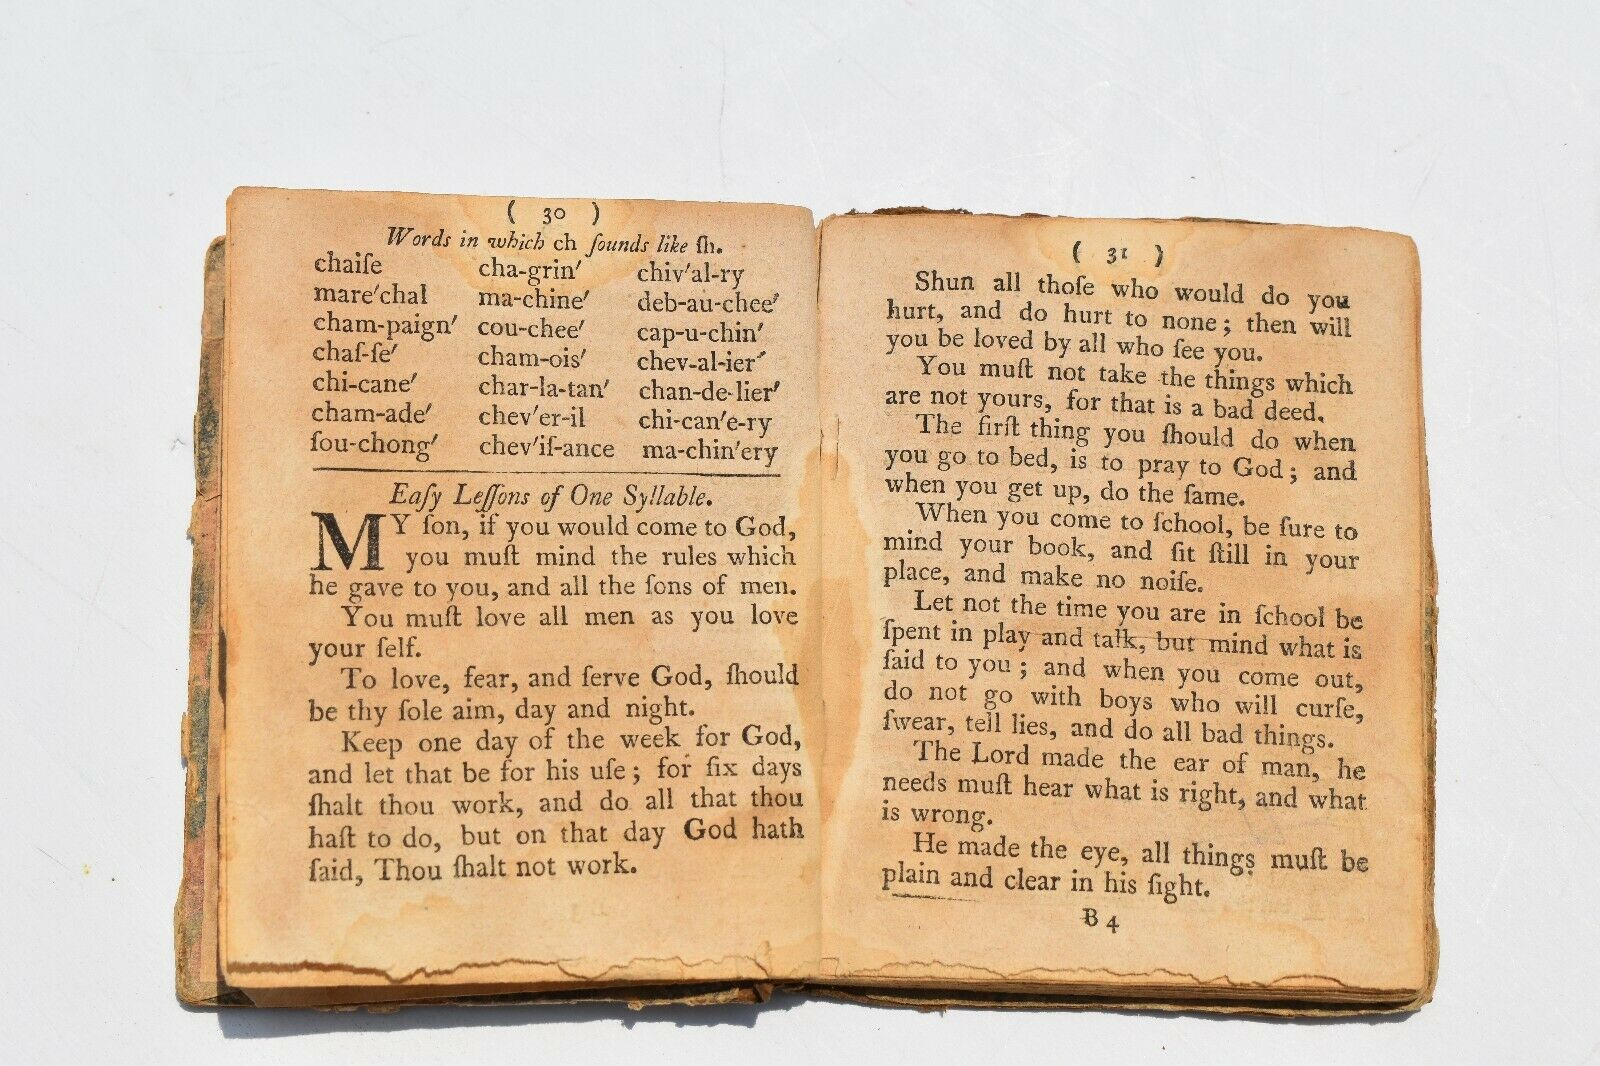 ( 30 )
Words in which ch ſounds like ſh.
chaiſe cha-grin′ chiv′al-ry
mare′chal ma-chine′ deb-au-chee′
cham-paign′ cou-chee′ cap-u-chin′
chaſ-ſe′ cham-ois′ chev-al-ier′
chi-cane′ char-la-tan′ chan-de-lier′
cham-ade′ chev′er-il chi-can′e-ry
ſou-chong′ chev′iſ-ance ma-chin′ery
Eaſy Leſſons of One Syllable.
MY ſon, if you would come to God,
you muſt mind the rules which
he gave to you, and all the ſons of men.
You muſt love all men as you love
your ſelf.
To love, fear, and ſerve God, ſhould
be thy ſole aim, day and night.
Keep one day of the week for God,
and let that be for his uſe; for ſix days
ſhalt thou work, and do all that thou
haſt to do, but on that day God hath
ſaid, Thou ſhalt not work.
( 31 )
Shun all thoſe who would do you
hurt, and do hurt to none; then will
you be loved by all who ſee you.
You muſt not take the things which
are not yours, for that is a bad deed.
The firſt thing you ſhould do when
you go to bed, is to pray to God; and
when you get up, do the ſame.
When you come to ſchool, be ſure to
mind your book, and ſit ſtill in your
place, and make no noiſe.
Let not the time you are in ſchool be
ſpent in play and talk, but mind what is
ſaid to you; and when you come out,
do not go with boys who will curſe,
ſwear, tell lies, and do all bad things.
The Lord made the ear of man, he
needs muſt hear what is right, and what
is wrong.
He made the eye, all things muſt be
plain and clear in his ſight.
B 4